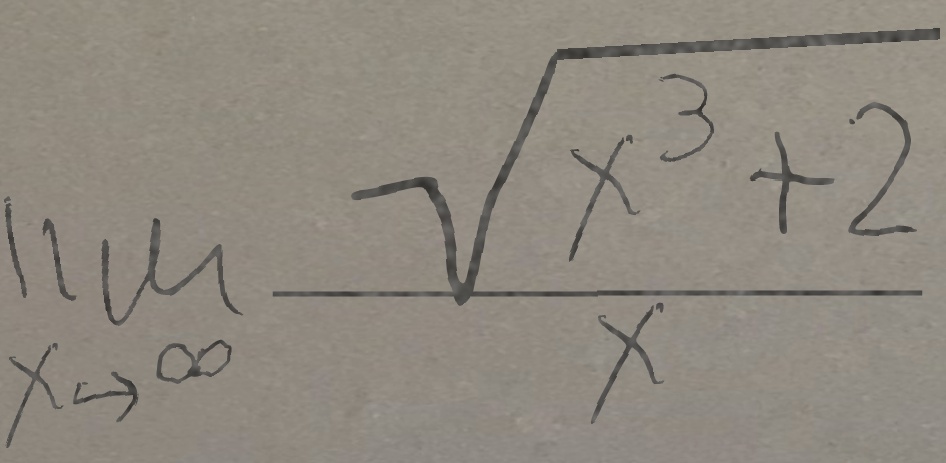 lim x→∞ √(x³+2) / x